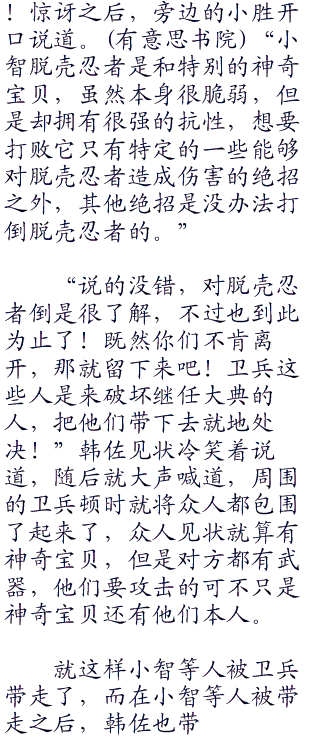 ！惊讶之后，旁边的小胜开
口说道。(有意思书院)“小
智脱壳忍者是和特别的神奇
宝贝，虽然本身很脆弱，但
是却拥有很强的抗性，想要
打败它只有特定的一些能够
对脱壳忍者造成伤害的绝招
之外，其他绝招是没办法打
倒脱壳忍者的。”
“说的没错，对脱壳忍
者倒是很了解，不过也到此
为止了！既然你们不肯离
开，那就留下来吧！卫兵这
些人是来破坏继任大典的
人，把他们带下去就地处
决！”韩佐见状冷笑着说
道，随后就大声喊道，周围
的卫兵顿时就将众人都包围
了起来了，众人见状就算有
神奇宝贝，但是对方都有武
器，他们要攻击的可不只是
神奇宝贝还有他们本人。
就这样小智等人被卫兵
带走了，而在小智等人被带
走之后，韩佐也带